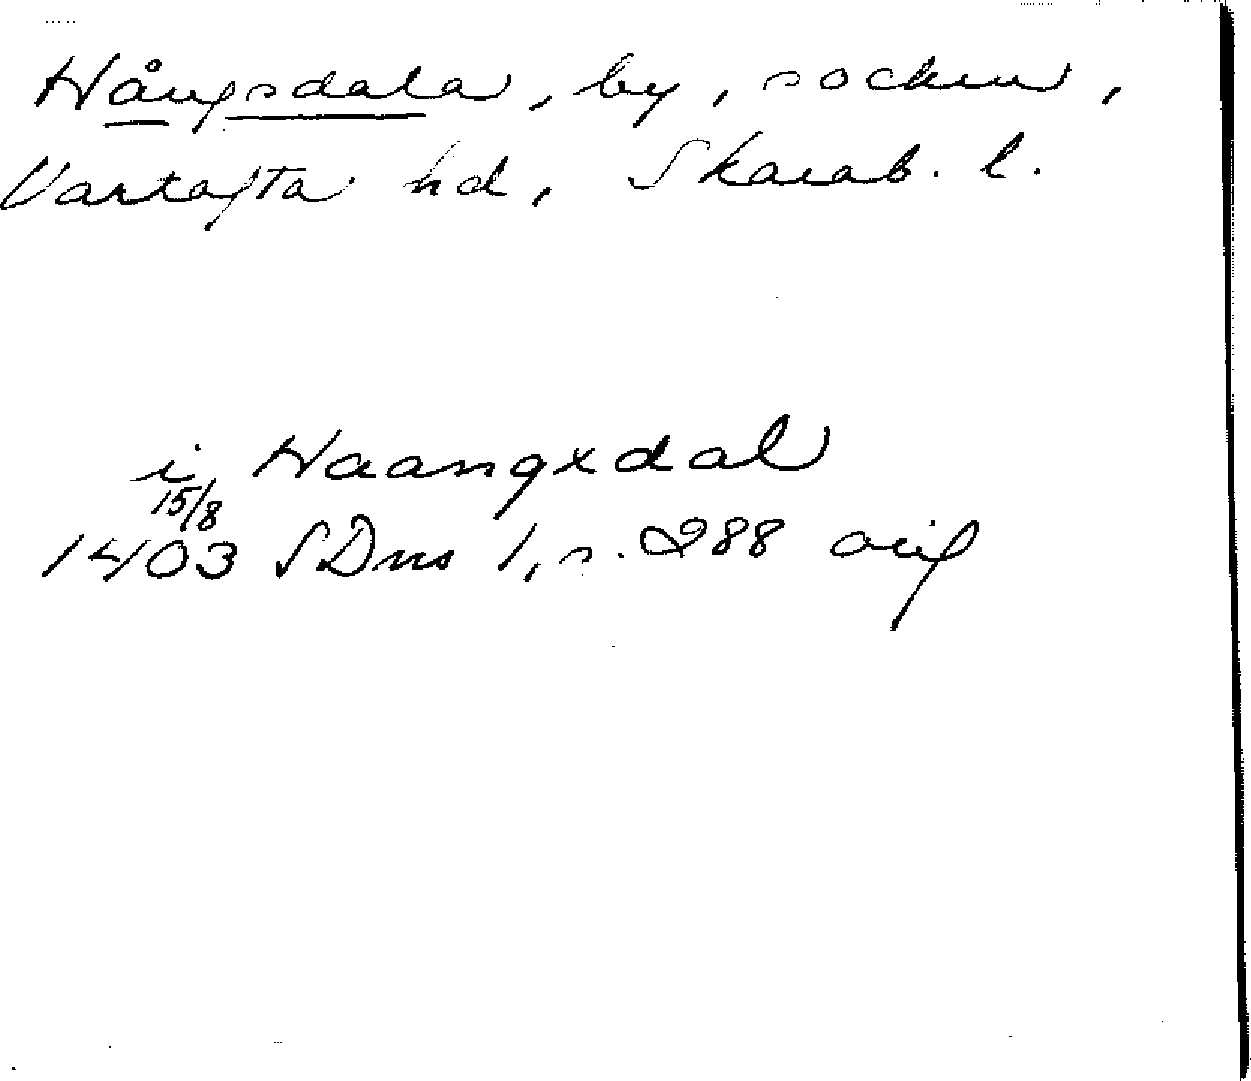 Hångsdala, by, socken,
Vartofta hd, Skarab. l.
i Haangxdal
15/8
1403 SDns 1, s. 288 orig